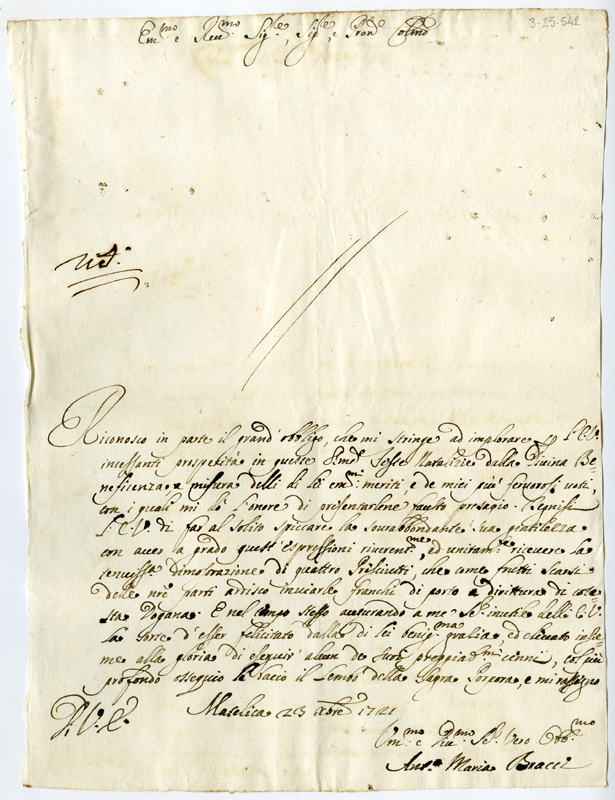 3-25-542
Em.mo e Reu.mo Sig.e, Sig.e e Pron.e Colmo
Riconosco in parte il grand' obbligo, che mi stringe ad implorare
incessanti prosperità in queste Feste Natalizie dalla Diuina Be-
neficenza a misura delli di lei em.mi meriti, e de miei più feruorosi uoti,
con i quali mi dò l'onore di presentarlene fausto presagio. Si
di far al solito spiccare la sourabbondante sua gentilezza
con auer la grado quest' espressioni riuerent.me, ed unitam.te riceuere la
dimostrazione di quattro Presciutti, che come frutti scarsi
delle nre parti ardisco inuiarle franchi di porto a dirittura di cote-
sta Dogana. E nel tempo stesso a me Se. inutile dell' E.V.
la sorte d'esser felicitato dalla di lei benig.ma grazia, ed eleuato insie-
me alla gloria di seruir' alcun de suoi cenni, col più
profondo ossequio le bacio il Lembo della Sagra Porpora, e mi rassegno
D. V. E.
Matelica 23 Xbre 1721
Um.mo e Se. Vero Obb.mo
Ant.o Maria Bracci